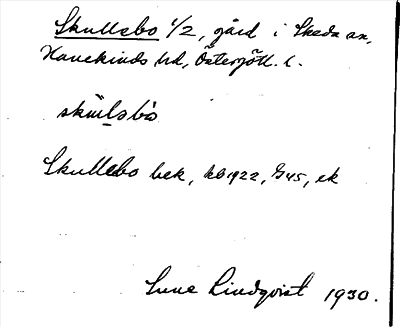 Skullebo 1/2, gård i Skeda sn,
Hanekinds hd, Östergötl. l.
skullsbo
Skullebo bek, kb 1922, G45, ek
Sune Lindqvist 1930.